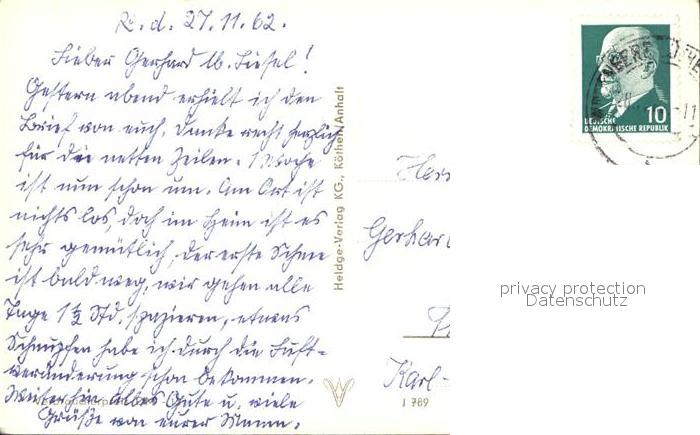 R. d. 27.11.62.
Lieber Gerhard lb. Liesel!
Gestern abend erhielt ich den
Brief von euch. Danke recht herzlich
für die netten Zeilen. 1 Woche
ist nun schon um. Am Ort ist
nichts los, doch im Heim ist es
sehr gemütlich, der erste Schnee
ist bald weg, wir gehen alle
Tage 1½ Std. spazieren, etwas
Schnupfen habe ich durch die Luft-
veränderung schon bekommen.
Weiterhin alles Gute u. viele
Grüße von eurer Mama.
Heldge-Verlag KG., Köthen/Anhalt
10
DEUTSCHE
DEMOKRATISCHE REPUBLIK
Gerhar
Karl-
J 789
privacy protection
Datenschutz